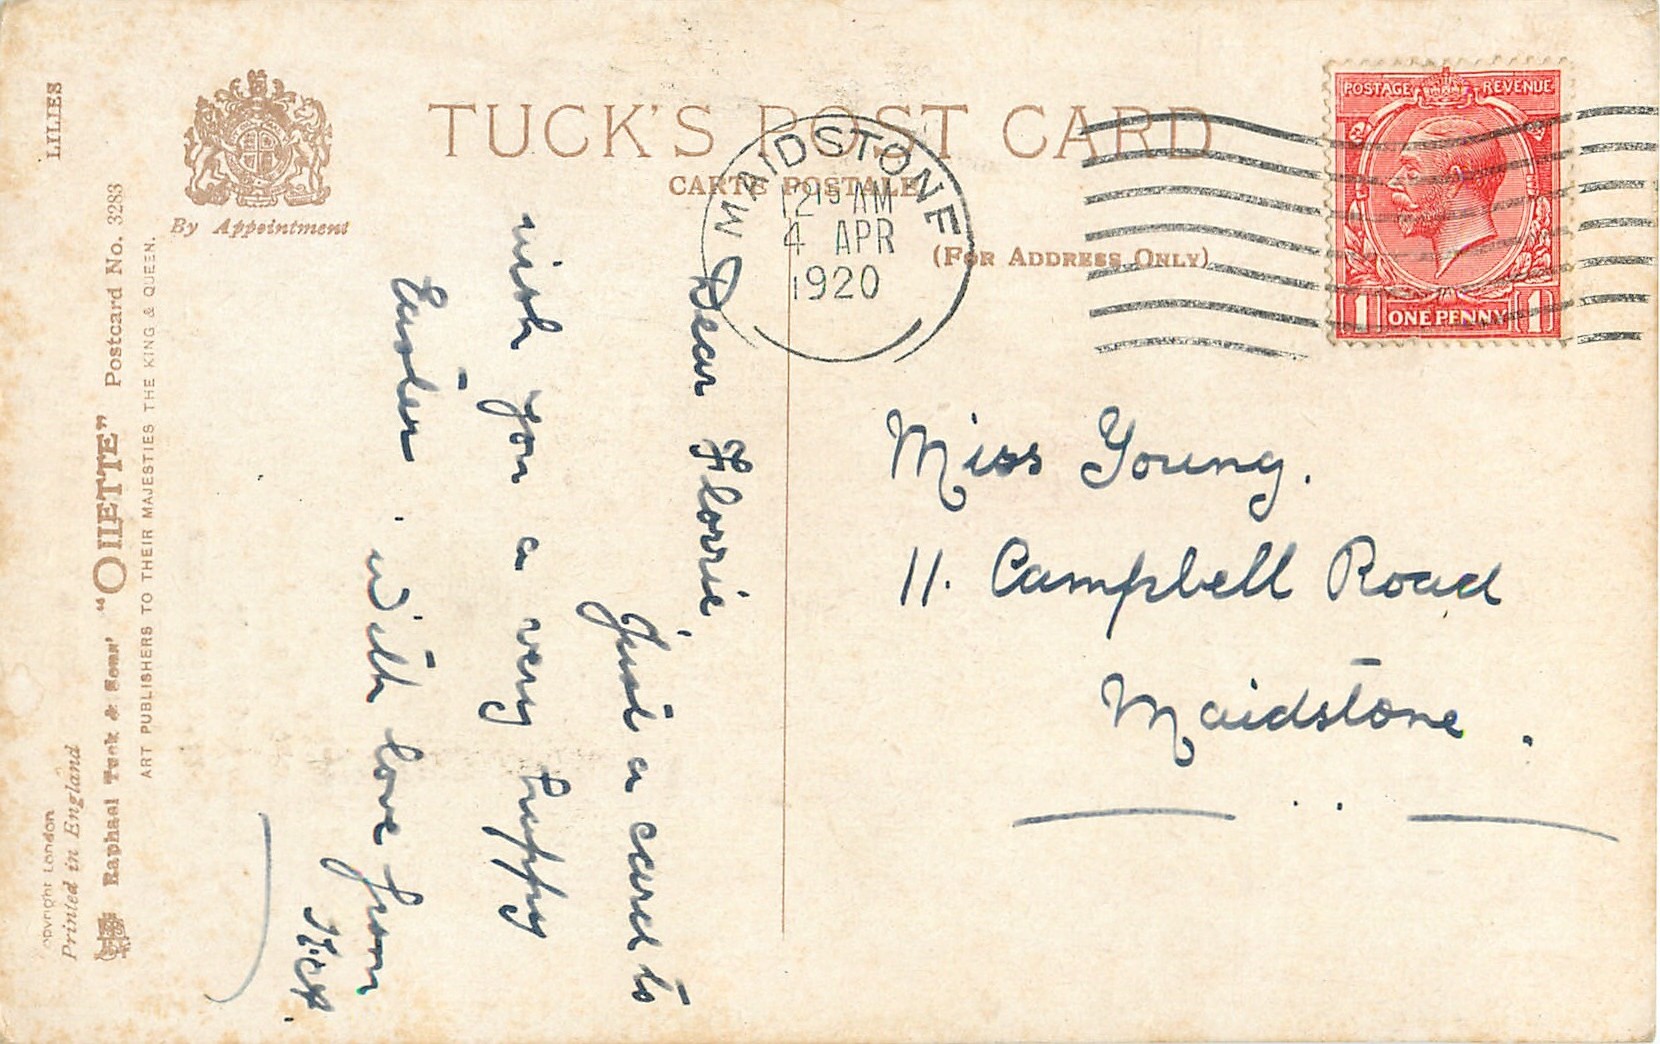 LILIES
By Appointment
TUCK'S POST CARD
CARTE POSTALE
(FOR ADDRESS ONLY)
MAIDSTONE
12 15 AM
4 APR
1920
POSTAGE REVENUE
1 ONE PENNY 1
Copyright London
Printed in England
Raphael Tuck & Sons' "OILETTE" Postcard No. 3283
ART PUBLISHERS TO THEIR MAJESTIES THE KING & QUEEN.
Dear Florrie,
Just a card to
wish you a very happy
Easter. with love from
Miss Young.
11. Campbell Road
Maidstone.